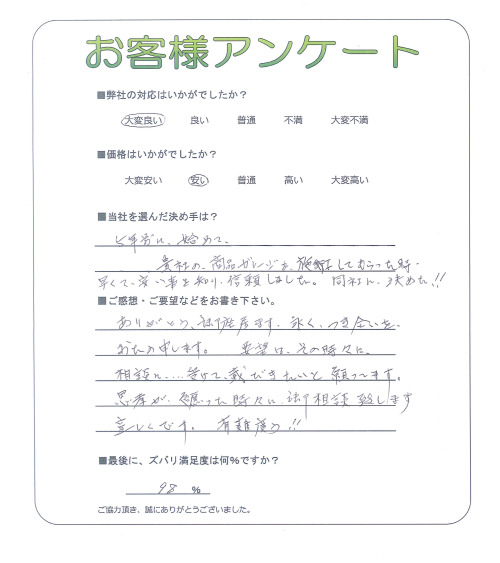 お客様アンケート
■弊社の対応はいかがでしたか？
大変良い 良い 普通 不満 大変不満
■価格はいかがでしたか？
大変安い 安い 普通 高い 大変高い
■当社を選んだ決め手は？
5年前に、始めて、
貴社の、商品ガレージを、施工してもらった時、
早くて、安い事を知り、信頼しました。同社に、決めた!!
■ご感想・ご要望などをお書き下さい。
ありがとう、御座居ます、永く、つき合いを、
お願い申します。 要望は、その時々に、
相談に……受けて、戴だきたいと願ってます。
が、った時々に、相談致します
宜しくです。 有難う!!
■最後に、ズバリ満足度は何%ですか？
98 %
ご協力頂き、誠にありがとうございました。